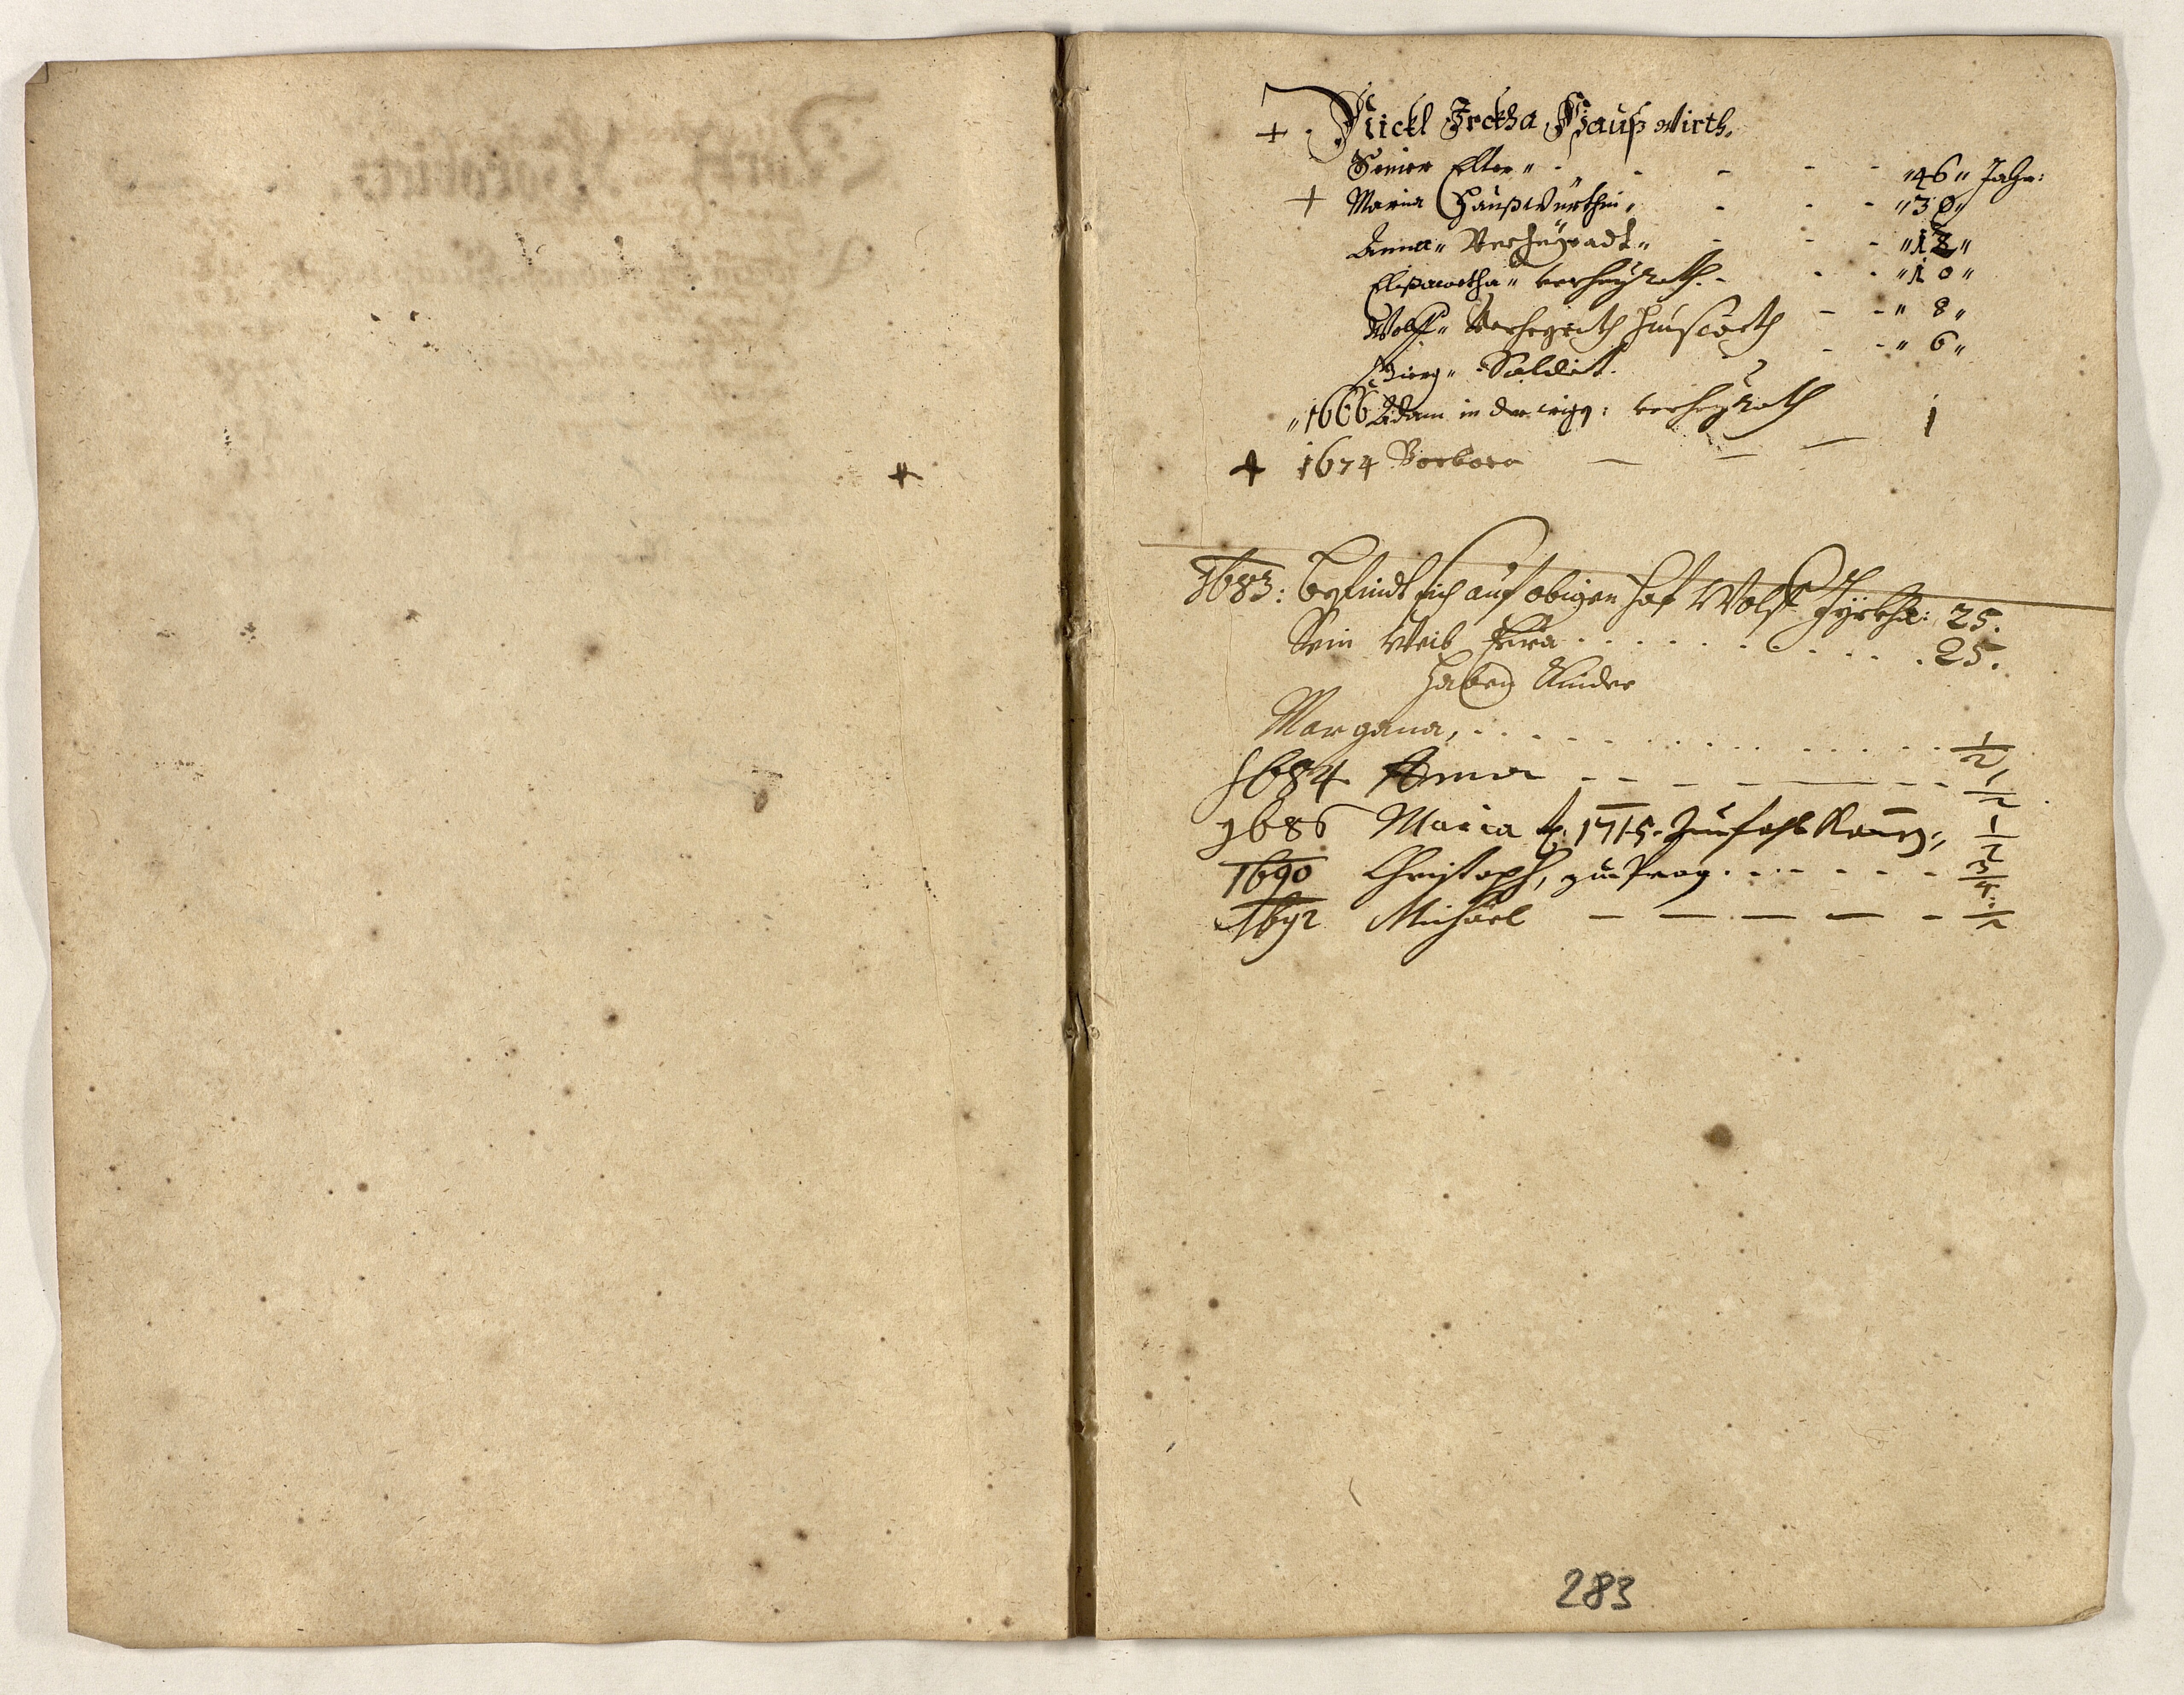 + Nickl Jrckha Haußwirth.
Seines Elter „ - - - - „46„ Jahr:
+ Maria Haußwürthin, - - - „30„
Anna„ Verheÿradt„ - - - „12„
Elisawetha„ verheÿrath. - - - „10„
Wolff„ Verheÿrath Hauswirth - - „ 8„
Georg„ Soldat. - - „ 6„
„1666 Adam in der verheÿrath 1
+ 1674 Barbara — — —
1683: befindt sich auf obigen Hof Wolf Jyrkha: 25.
Sein Weib Eva . . . . . . . . . 25.
Haben Kinder
Margana, . . . . . . . . . . . . 1/2
1684 Anna - - - — — - - 1/2
1686 Maria 1715. 1/2
1690 Christoph, zu Prag . . - - - - - 3/4
1692 Michael — — — — - 1/2
283